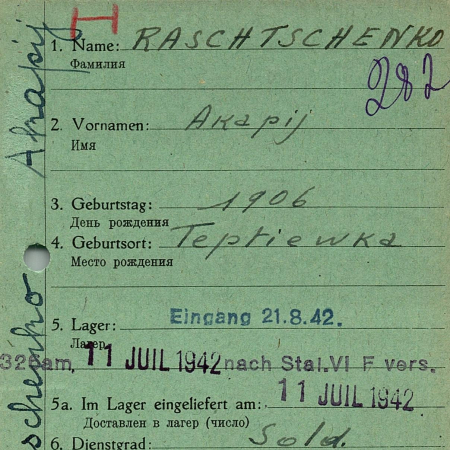 1. Name: RASCHTSCHENKO
Фамилия
282
2. Vornamen: Akapij
Имя
3. Geburtstag: 1906
День рождения
4. Geburtsort: Teptiewka
Место рождения
5. Lager: Eingang 21.8.42.
Лагерь
325am, 11 JUIL 1942 nach Stal.VI F vers.
11 JUIL 1942
5a. Im Lager eingeliefert am:
Доставлен в лагер (число)
6. Dienstgrad: Sold.
Akapij
schenko